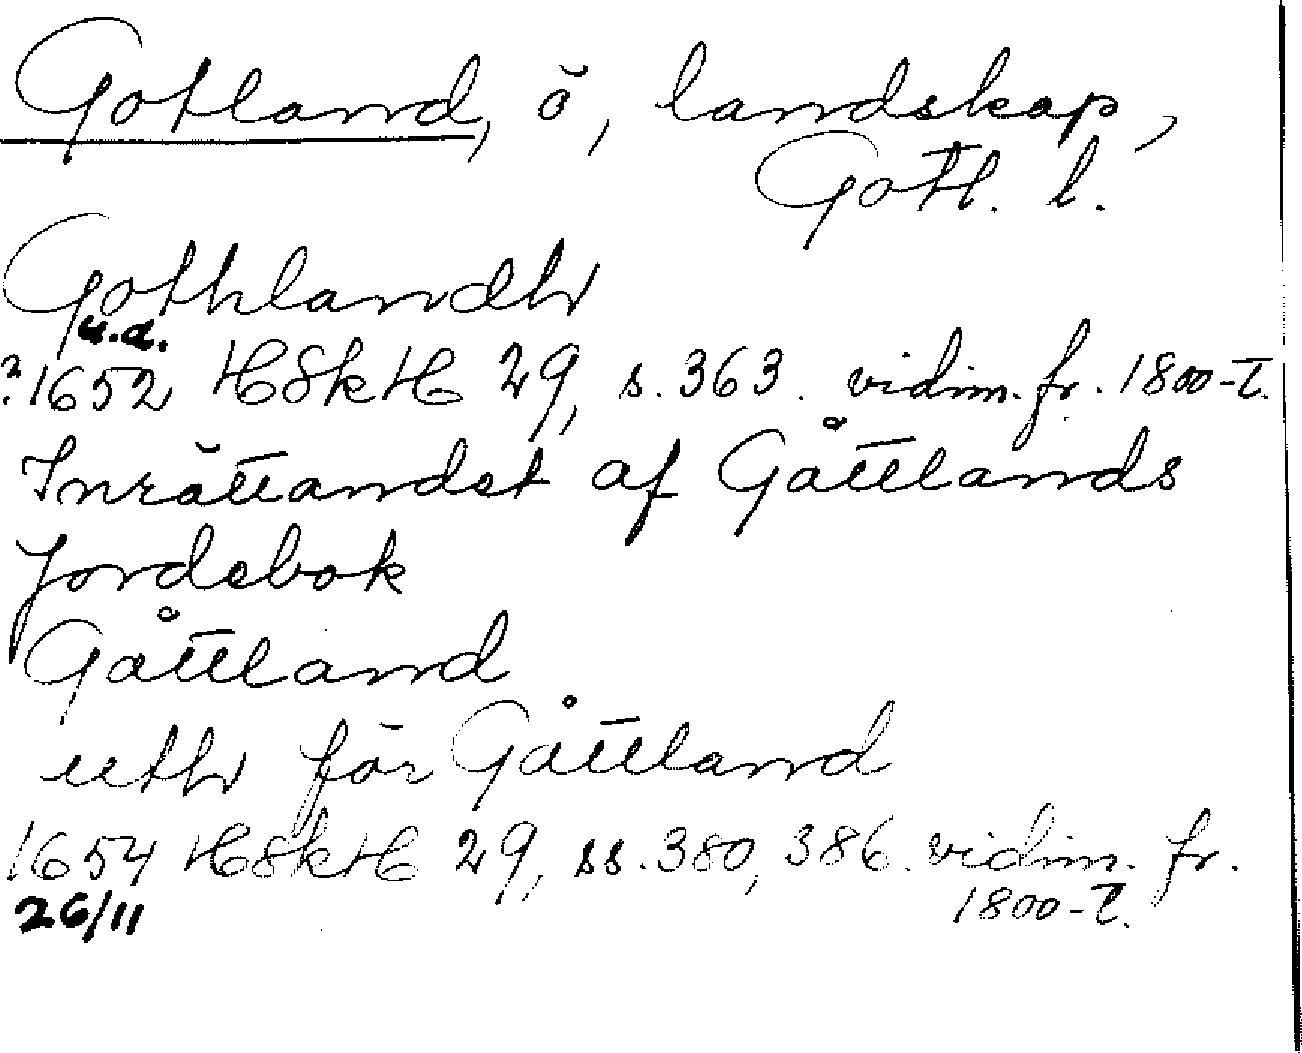 Gotland, ö, landskap,
Gotl. l.
Gothlandh
u.d.
?1652 HSkH 29, s. 363. vidim. fr. 1800-t.
Inrättandet af Gåttlands
Jordebok
Gåttland
uth för Gåttland
1654 HSkH 29, ss. 380, 386. vidim. fr.
1800-t.
26/11